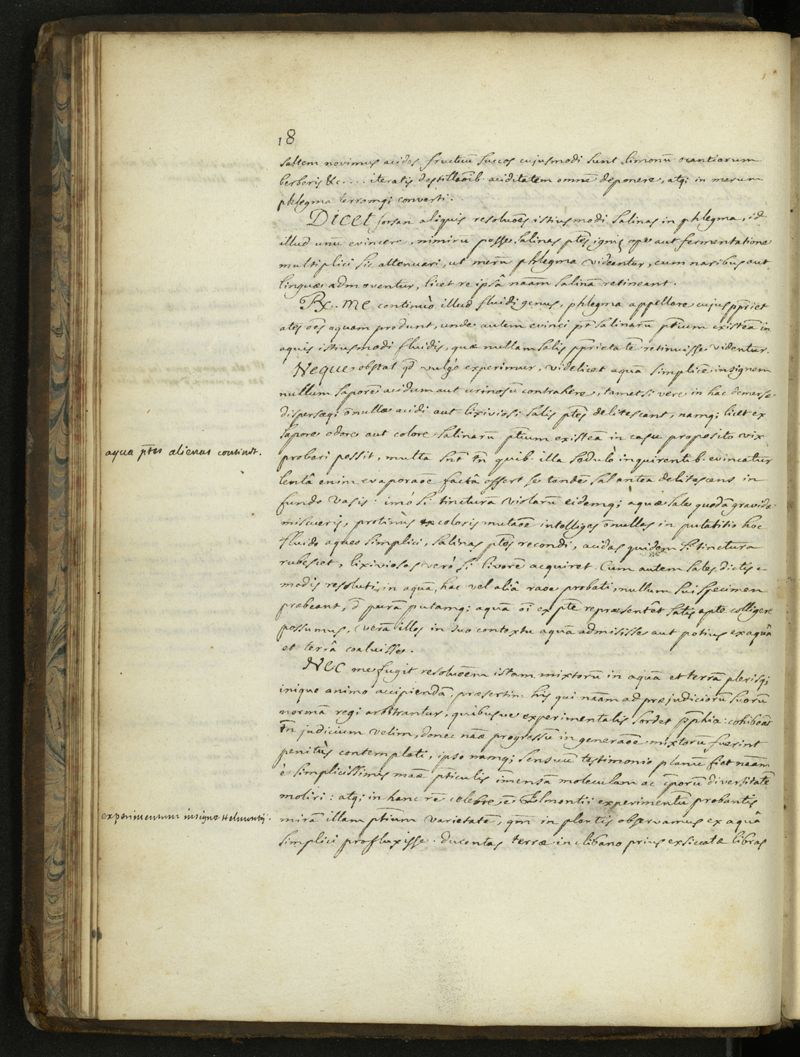 18
saltem novimus acidos fructuū succos cujusmodi sunt limonū arantiorum
berberis &c.... iteratis destillaōib aciditatem omnē deponere, atqi in merum
phlegma terramqi converti.
Dicet forsan aliquis resoluōes istiusmodi salinas in phlegma, id
illud unū evincere, nimirū posse salinas ptēs ignis ope aut fermentatione
multiplici sic attenuari, ut merū phlegma videantur, cum naribus aut
linguæ admoventur, licet re ipsâ naām salinā retineant.
Rx. me continuò illud fluidi genus, phlegma appellare cujus ppriet
ates oēs aquam produnt, unde autem evinci pt salinarū ptium existēa in
aquis istiusmodi fluidis, quæ nullam salis pprietatē retinuisse videntur.
Neque obstat qd vulgò experimur, videlicet aquā simplicē insignem
nullum saporē acidum aut urinosū contrahere, tametsi vere in hac demersæ
dispersæqi nullæ acidi aut lixiviosi salis ptēs delitescant, namqi licet ex
sapore odore aut colore salinarū ptium existēa in casu proposito vix
aqua ptes alienas continet.
probari possit, multa sūt tn quib illa sedulo inquirentib evincatur
lentâ enim evaporaōe factâ offert se tandē sal antea delitescens in
fundo vasis: imò si tincturā violarū eidemqi aquæ sale quodā gravidæ
miscueris, protinùs ex coloris mutaōe intelliges nullas in putatitio hoc
fluido aqueo simplici, salinas ptēs recondi, acidas quidem si tinctura
rubescet, lixiviosas verò si livorē acquiret. Cum autem sales dictis
modis resoluti, in aquā, hac vel aliâ raōe probati, nullum sui specimen
præbeant, puram putamqi aquā oī ex pte repræsentēt satis apte colligere
possumus, verā illos in suo contextu aquā admisisse aut potius ex aquâ
et terrâ coaluisse.
Nec me fugit resoluōem istam mixtorū in aquā et terrā plerisqi
iniquo animo accipiendā, præsertim his qui naām ad præjudiciorū suorū
normā regi arbitrantur, quibusve experimentalis sordet pphia: cohibeāt
tn judicium velim, donec naæ progressū in generaōe mixtorū fuerint
penitùs contemplati, ipso namqi sensuū testimonio planū fiet naām
è simplicissimis maæ pticulis īmensā molecularum ac cporū diversitatē
moliri: atqi in hanc rē celebre ē Elmontii experimentū probantis
experimentum insigne Helmontij.
mirā illam ptium varietatē, qm in plantis observamus ex aquâ
simplici profluxisse. ducentas terræ in clibano prius exsiccatæ libras